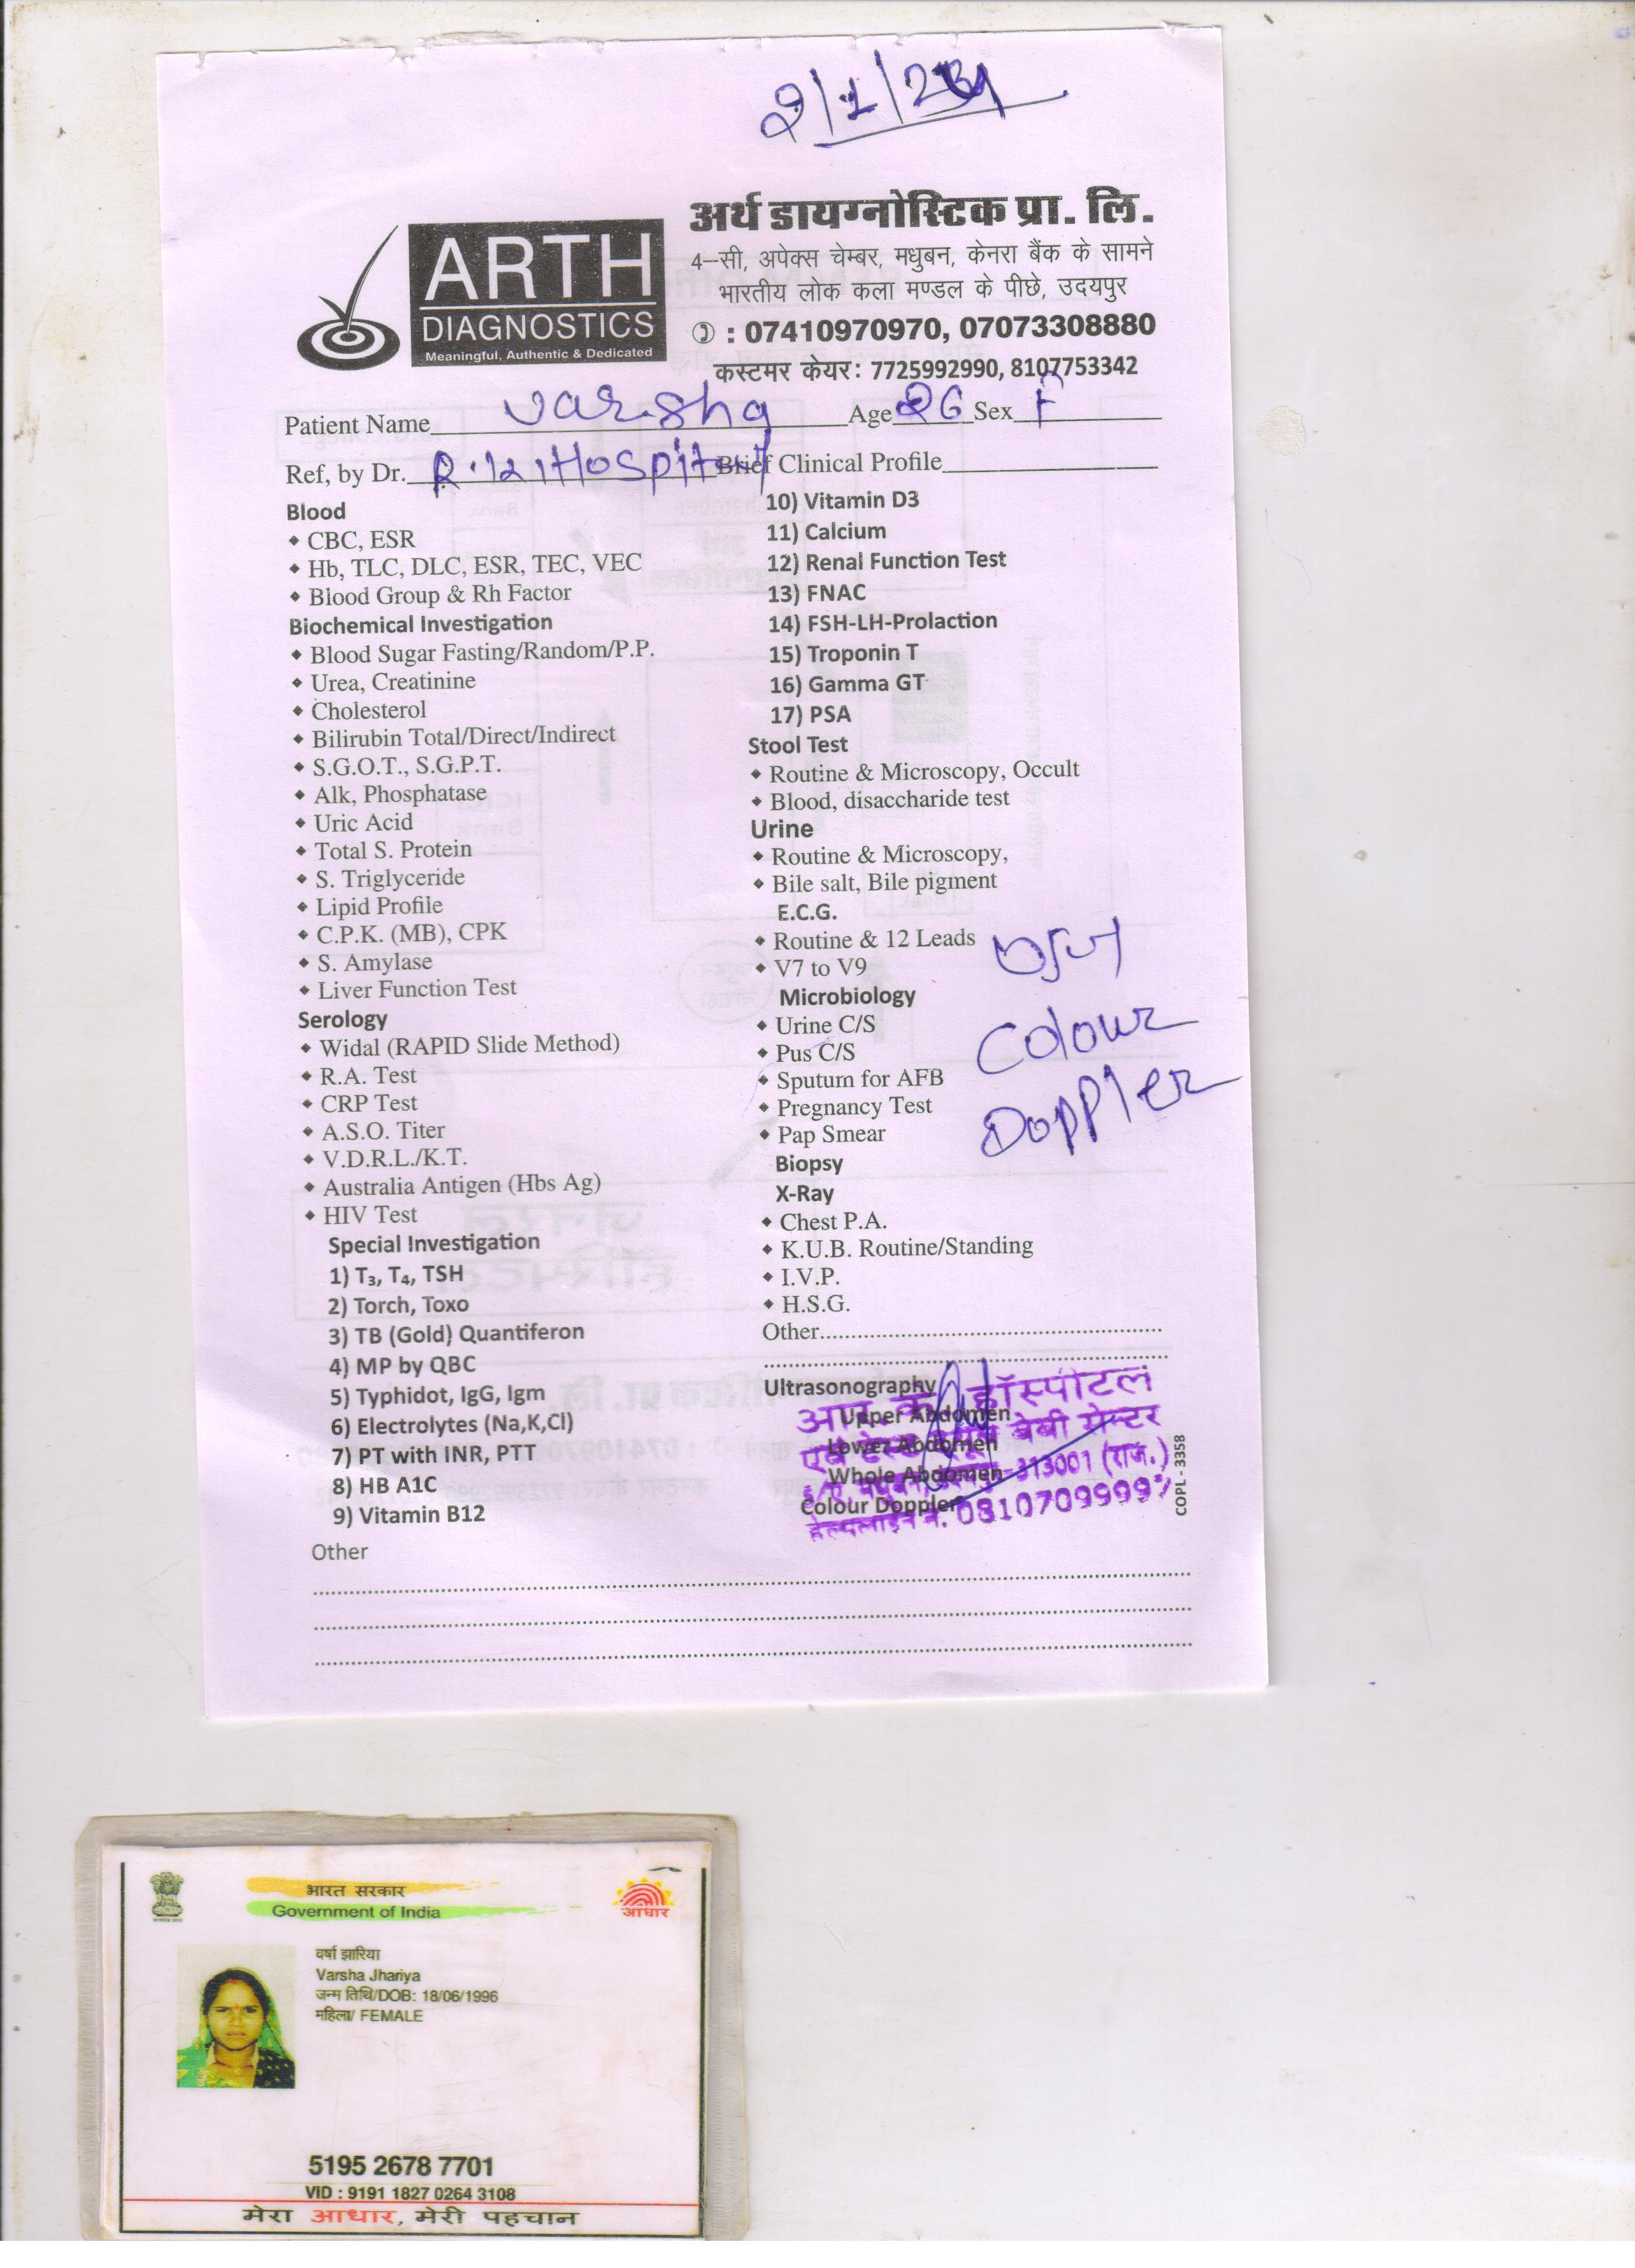 अर्थ डायग्नोस्टिक प्रा. लि.
ARTH
DIAGNOSTICS
Meaningful, Authentic & Dedicated
4-सी, अपेक्स चेम्बर, मधुबन, केनरा बैंक के सामने
भारतीय लोक कला मण्डल के पीछे, उदयपुर
: 07410970970, 07073308880
कस्टमर केयर: 7725992990, 8107753342
Patient Name Varsha Age 26 Sex F
Ref, by Dr. Hospital Brief Clinical Profile
Blood
CBC, ESR
Hb, TLC, DLC, ESR, TEC, VEC
Blood Group & Rh Factor
Biochemical Investigation
Blood Sugar Fasting/Random/P.P.
Urea, Creatinine
Cholesterol
Bilirubin Total/Direct/Indirect
S.G.O.T., S.G.P.T.
Alk, Phosphatase
Uric Acid
Total S. Protein
S. Triglyceride
Lipid Profile
C.P.K. (MB), CPK
S. Amylase
Liver Function Test
Serology
Widal (RAPID Slide Method)
R.A. Test
CRP Test
A.S.O. Titer
V.D.R.L./K.T.
Australia Antigen (Hbs Ag)
HIV Test
Special Investigation
1) T3, T4, TSH
2) Torch, Toxo
3) TB (Gold) Quantiferon
4) MP by QBC
5) Typhidot, IgG, Igm
6) Electrolytes (Na,K,Cl)
7) PT with INR, PTT
8) HB A1C
9) Vitamin B12
Other
10) Vitamin D3
11) Calcium
12) Renal Function Test
13) FNAC
14) FSH-LH-Prolaction
15) Troponin T
16) Gamma GT
17) PSA
Stool Test
Routine & Microscopy, Occult
Blood, disaccharide test
Urine
Routine & Microscopy,
Bile salt, Bile pigment
E.C.G.
Routine & 12 Leads
V7 to V9
Microbiology
Urine C/S
Pus C/S
Sputum for AFB
Pregnancy Test
Pap Smear
Colour
Doppler
Biopsy
X-Ray
Chest P.A.
K.U.B. Routine/Standing
I.V.P.
H.S.G.
Other
Ultrasonography
Upper Abdomen
Lower Abdomen
Whole Abdomen
Colour Doppler
हॉस्पीटल
बेबी सेन्टर
313001 (राज.)
हेल्पलाईन नं. 08107099997
COPL - 3358
भारत सरकार
Government of India
आधार
वर्षा झारिया
Varsha Jhariya
जन्म तिथि/DOB: 18/06/1996
महिला/ FEMALE
5195 2678 7701
VID : 9191 1827 0264 3108
मेरा आधार, मेरी पहचान